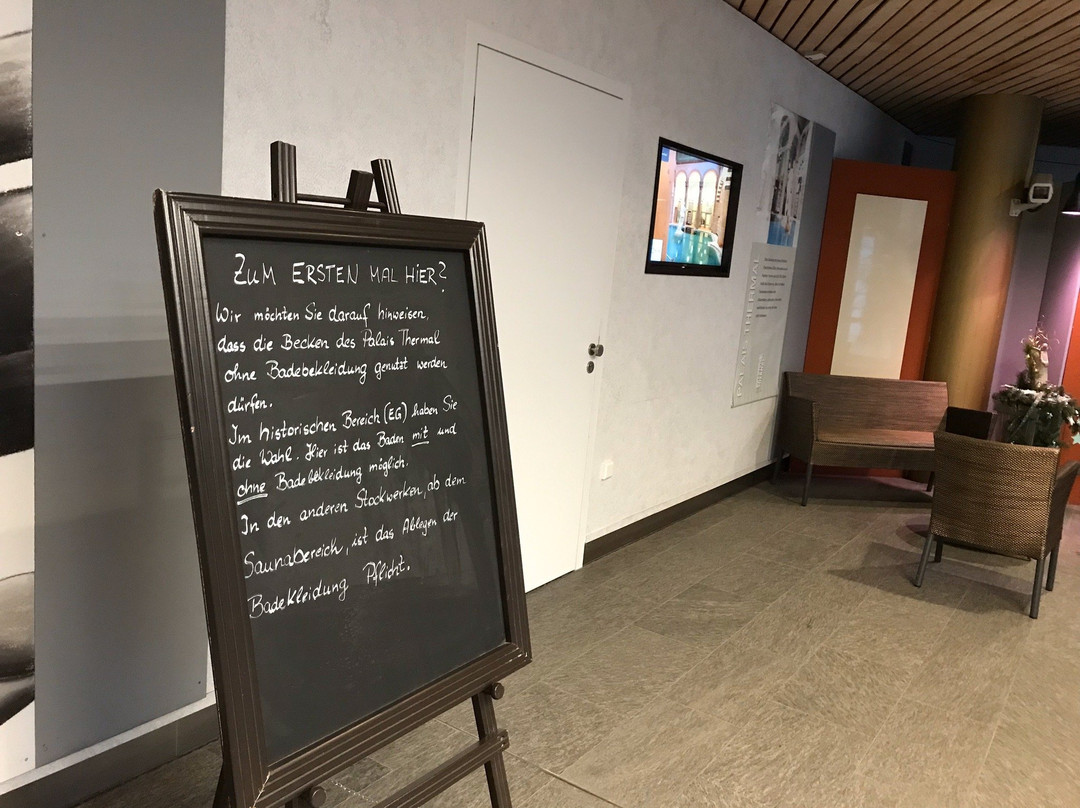 ZUM ERSTEN MAL HIER?
Wir möchten Sie darauf hinweisen,
dass die Becken des Palais Thermal
ohne Badebekleidung genutzt werden
dürfen.
Im historischen Bereich (EG) haben Sie
die Wahl. Hier ist das Baden mit und
ohne Badebekleidung möglich.
In den anderen Stockwerken, ab dem
Saunabereich, ist das Ablegen der
Badekleidung Pflicht.
PALAIS THERMAL